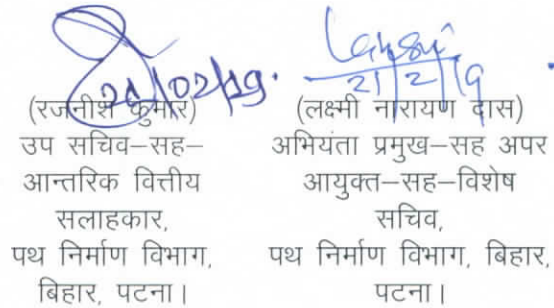 21/02/19.
(रजनीश कुमार)
उप सचिव–सह–
आन्तरिक वित्तीय
सलाहकार,
पथ निर्माण विभाग,
बिहार, पटना।
21/2/19
(लक्ष्मी नारायण दास)
अभियंता प्रमुख–सह अपर
आयुक्त–सह–विशेष
सचिव,
पथ निर्माण विभाग, बिहार,
पटना।